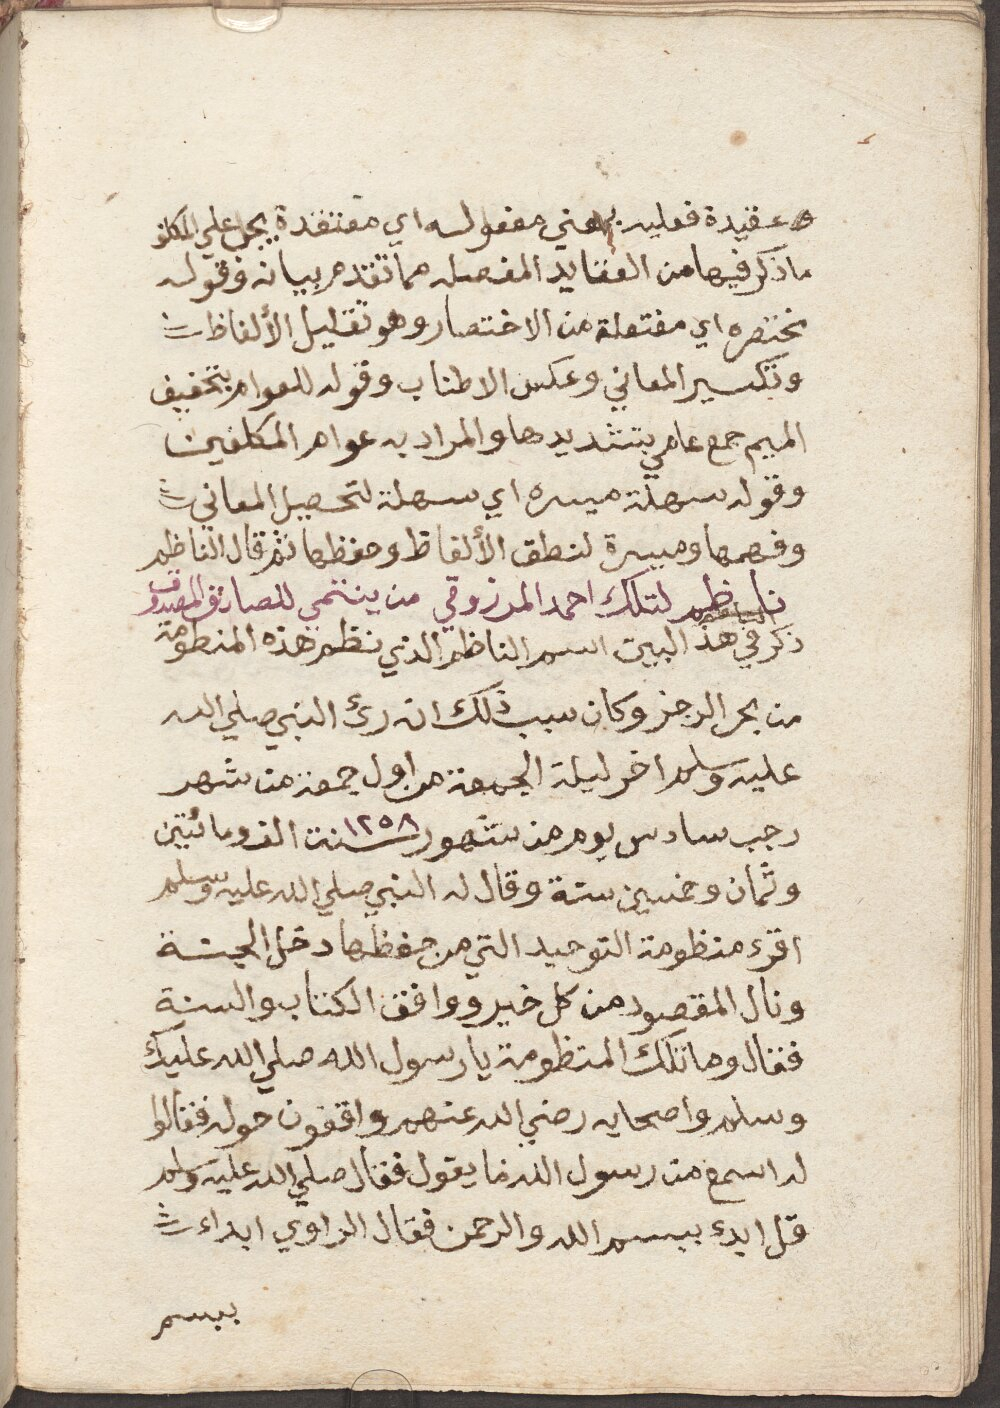 عقيدة فعليه بمعني مفعوله اي معتقدة يجب علي المكلف
ما ذكر فيها من العقايد المفصله مما تقدم بيانه وقوله
مختصره اي مفتعلة من الاختصار وهو تقليل الألفاظ
وتكسير المعاني وعكس الاطناب وقوله للعوام بتخفيف
الميم جمع عامي بتشديدها والمراد به عوام المكلفين
وقوله سهلة ميسره اي سهلة لتحصيل المعاني
وفهمها وميسرة لنطق الألفاظ وحفظها ثم قال الناظم
ناظم لتلك احمد المرزوقي من ينتمي للصادق المصدوق
ذكر في هذا البيت اسم الناظم الذي نظم هذه المنظومة
من بحر الرجز وكان سبب ذلك انه رئ النبي صلي الله
عليه وسلم اخر ليلة الجمعة من اول جمعة من شهر
رجب سادس يوم من شهور ١٢٥٨ سنة الف ومائتين
وثمان وخمسين سنة وقال له النبي صلي الله عليه وسلم
اقرء منظومة التوحيد التي من حفظها دخل الجنة
ونال المقصود من كل خير ووافق الكتاب والسنة
فقال وما تلك المنظومة يا رسول الله صلي الله عليك
وسلم واصحابه رضي الله عنهم واقفون حوله فقالوا
له اسمع من رسول الله ما يقول فقال صلي الله عليه وسلم
قل ابدء ببسم الله والرحمن فقال الراوي ابداء
ببسم